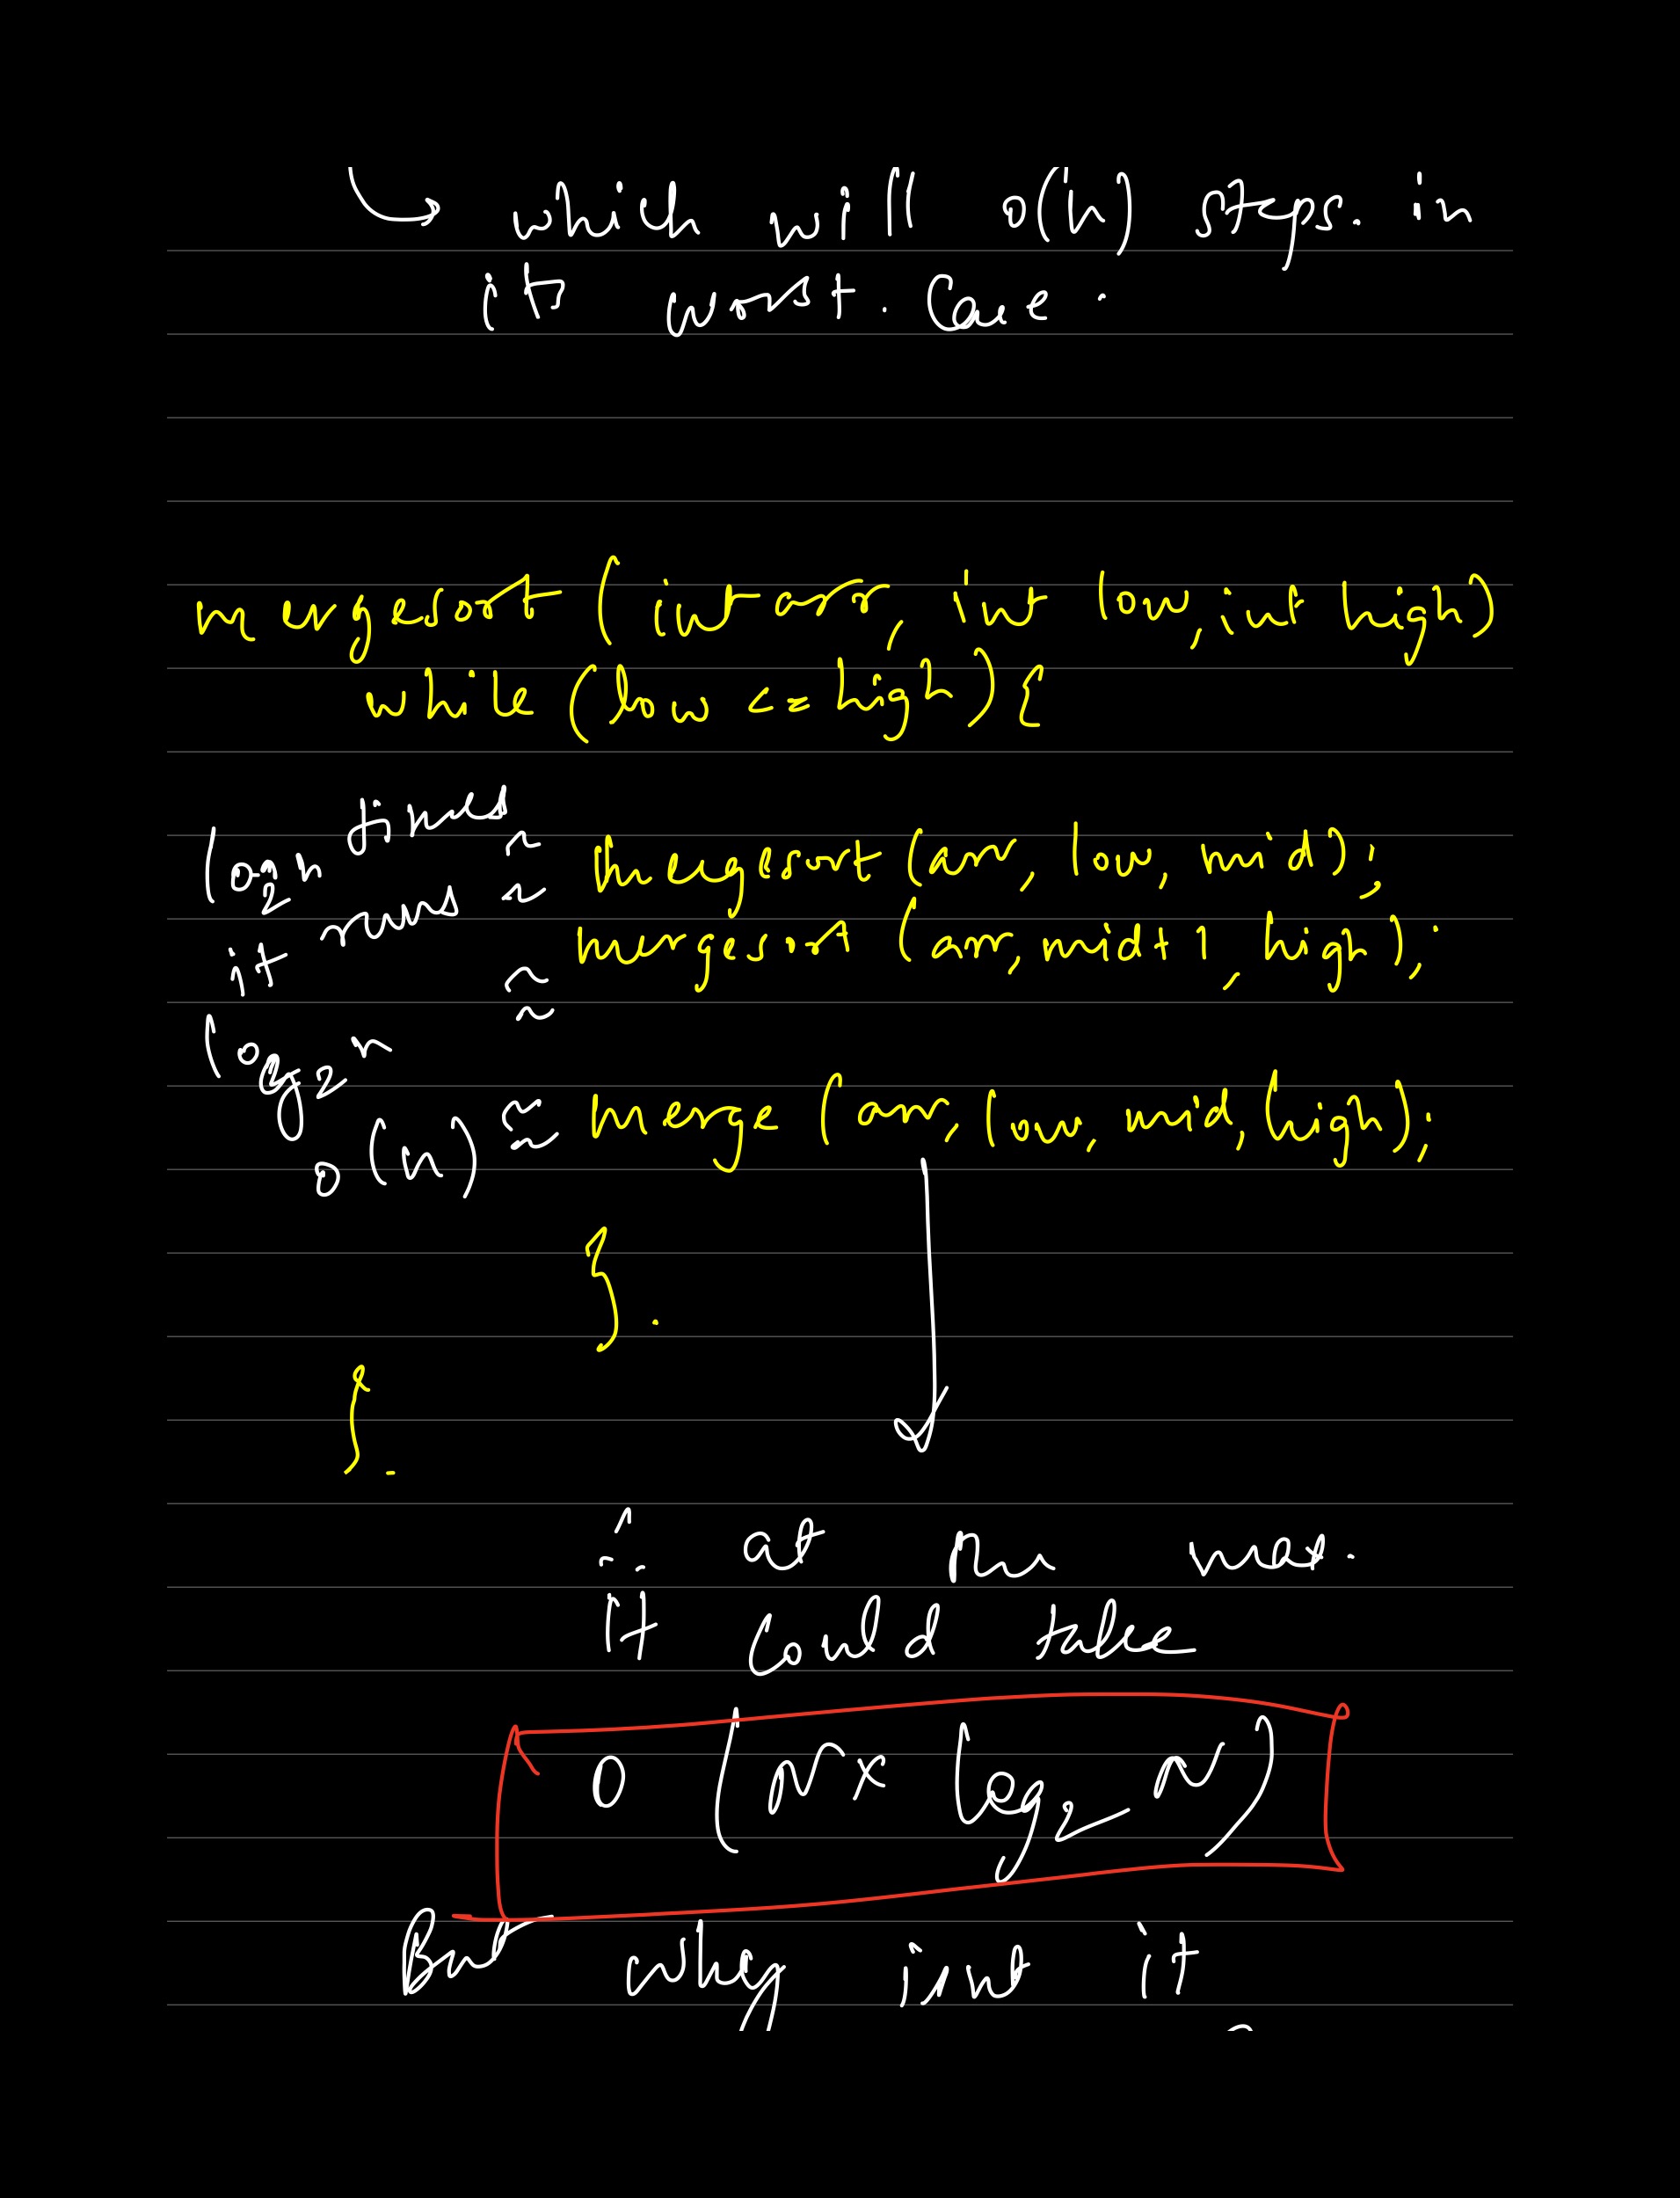 ↳ which will O(n) steps. in
its worst. Case.
mergesort (int arr, int low, int high)
while (low <= high) {
log₂n times ≈ mergesort (arr, low, mid);
it runs ≈ mergesort (arr, mid+1, high);
log₂n
O(n) ≈ merge (arr, low, mid, high);
}.
}.
∴ at the max.
it could take
O (N x log₂ N)
But why isnt it